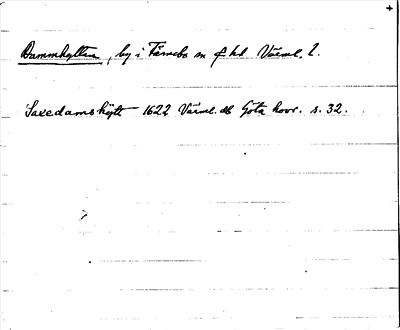 +
Dammhyttan, by i Färnebo sn o hd Värml. l.
Saxedamshytt 1622 Värml. db Göta hovr. s. 32.